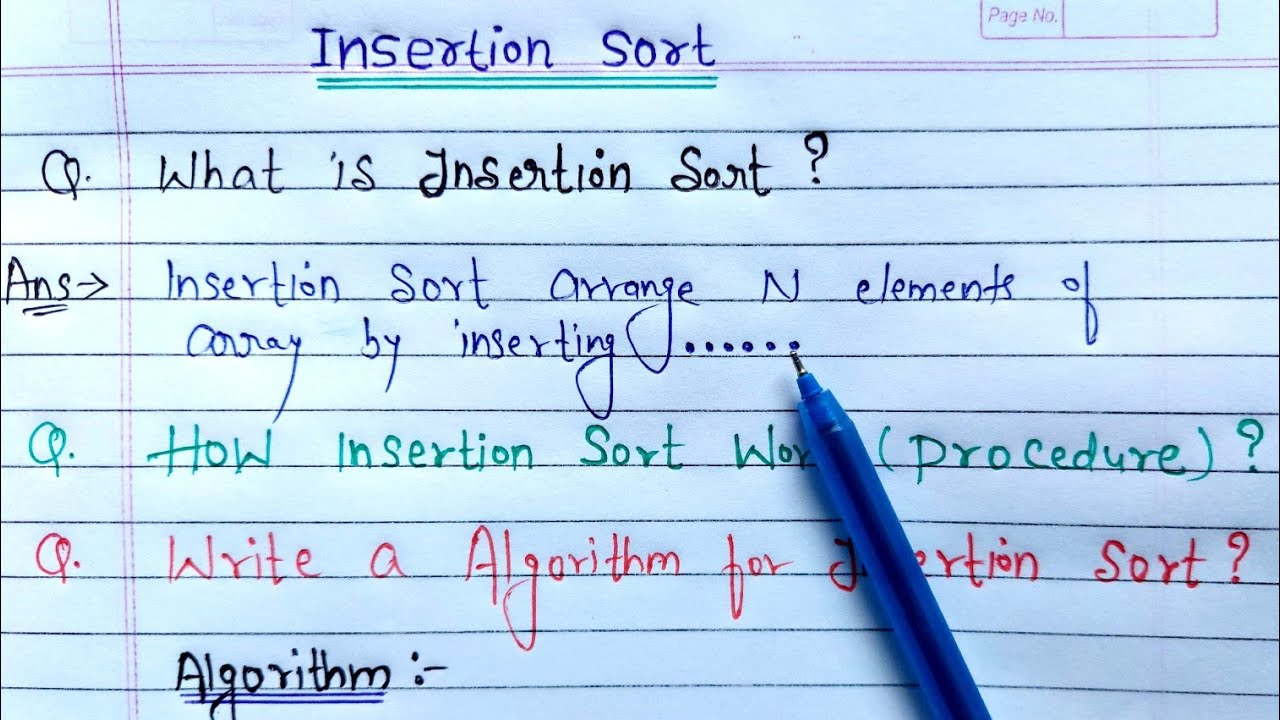 Page No.
Insertion Sort
Q. What is Insertion Sort ?
Ans→ Insertion Sort arrange N elements of
array by inserting ......
Q. How Insertion Sort Wor (procedure) ?
Q. Write a Algorithm for Insertion Sort ?
Algorithm :-